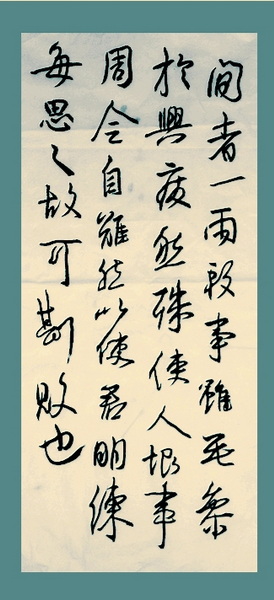 间者一兩段事雖無
於興廢然殊使人恨事
周令自雖然以使君明練
每思之故可斟敗也